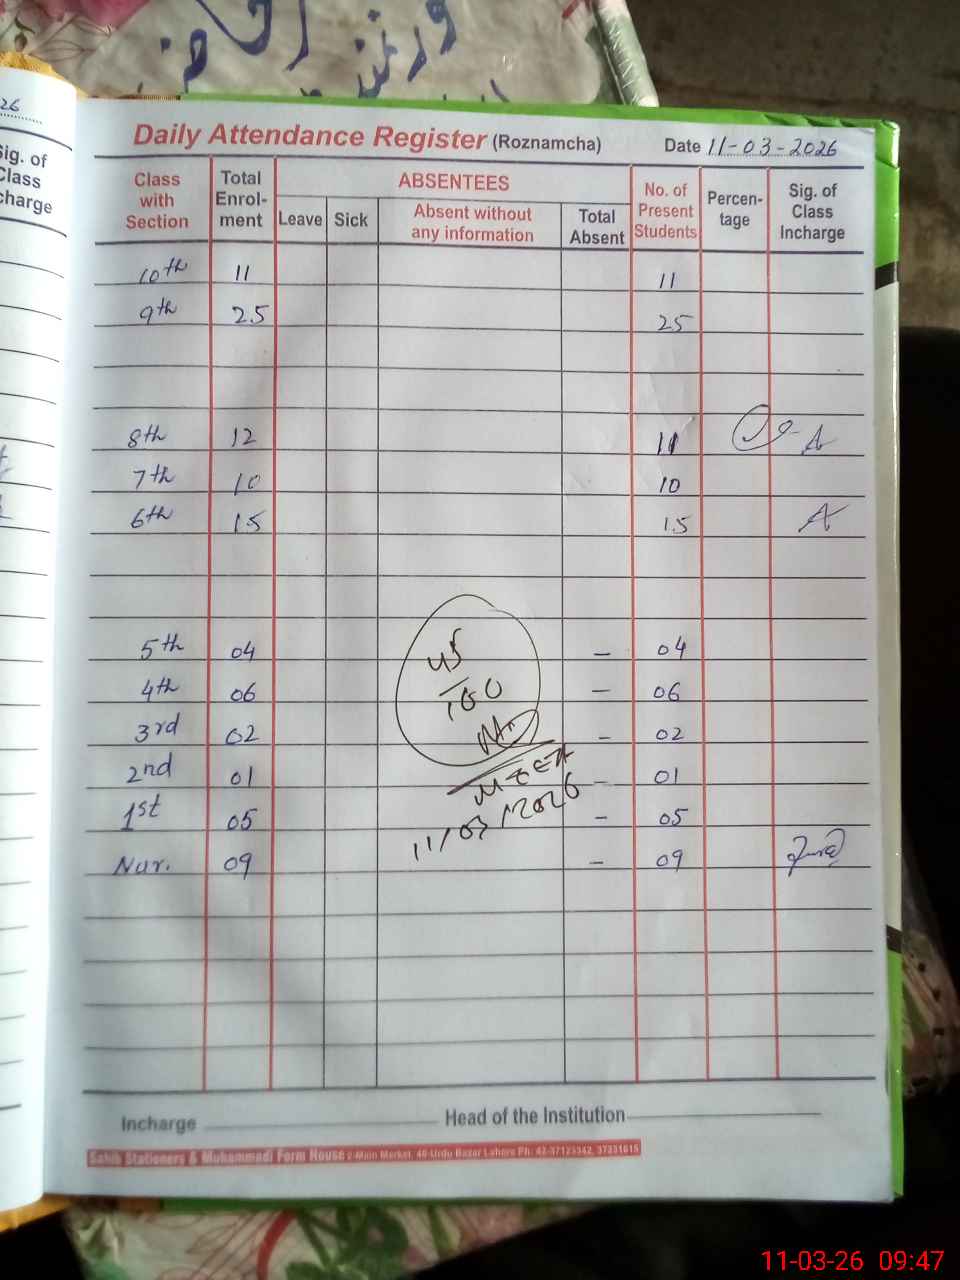 26
Sig. of
Class
charge
Daily Attendance Register (Roznamcha) Date 11-03-2026
Class with Section Total Enrol-ment ABSENTEES No. of Present Students Percen-tage Sig. of Class Incharge
Leave Sick Absent without any information Total Absent
10th 11 11
9th 25 25
8th 12 11
7th 10 10
6th 15 15
5th 04 — 04
4th 06 — 06
3rd 02 — 02
2nd 01 — 01
1st 05 — 05
Nur. 09 — 09
45
100
11/03/2026
Incharge Head of the Institution
Sahib Stationers & Muhammadi Form House 2-Main Market, 40-Urdu Bazar Lahore Ph: 42-37123342, 37231615
11-03-26 09:47